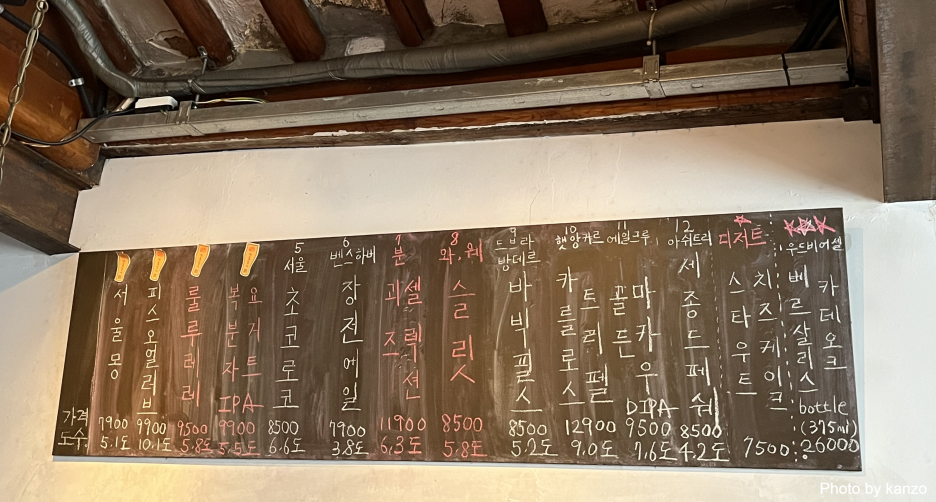 가격
도수
서울몽
7900
5.1도
피스오열리브
9900
10.1도
룰루레레
9500
5.8도
복분자
요거트
IPA
9900
5.5도
5
서울
초코로코
8500
6.6도
6
벤스하버
장전에일
7900
3.8도
7
분
괴즈
셀렉션
11900
6.3도
8
와,웨
슬릿
8500
5.8도
9
드브라
방데르
바빅핏
8500
5.2도
10
햇앙카르
카를로스
트리펠
12900
9.0도
11
에일크루
골든
마카우
DIPA
9500
7.6도
12
아쉬트리
세종드페쉐
8500
4.2도
디저트
스타우트
치즈케이크
7500
우드비어셀
베르살리스
카데오크
bottle
(375ml)
26000
Photo by kanzo